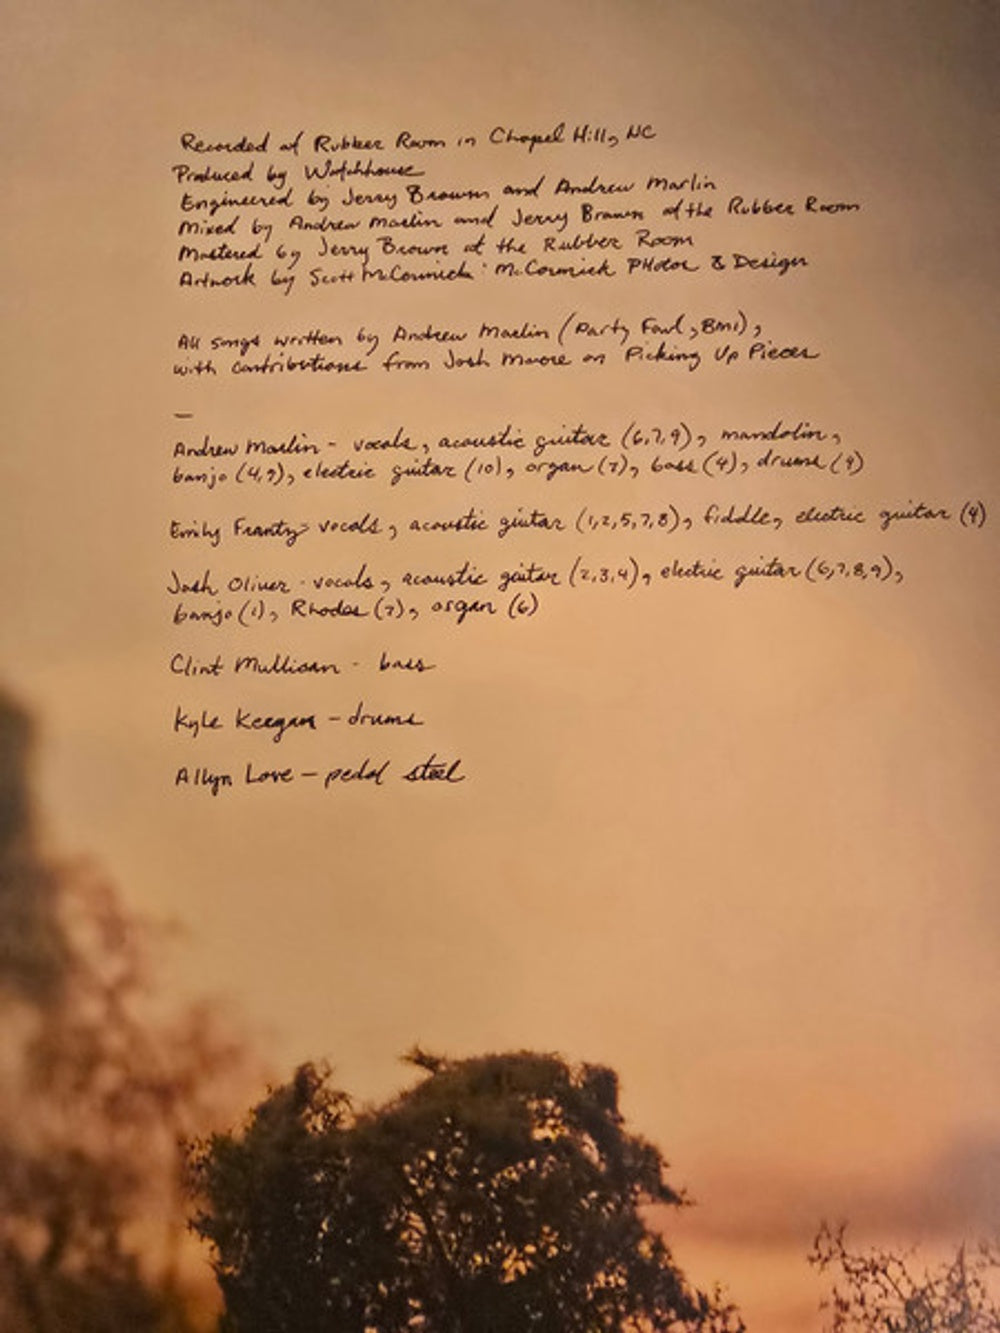 Recorded at Rubber Room in Chapel Hill, NC
Produced by Watchhouse
Engineered by Jerry Brown and Andrew Marlin
Mixed by Andrew Marlin and Jerry Brown at the Rubber Room
Mastered by Jerry Brown at the Rubber Room
Artwork by Scott McCormick: McCormick PHotos & Design
All songs written by Andrew Marlin (Party Fowl, BMI),
with contributions from Josh Moore on Picking Up Pieces
—
Andrew Marlin - vocals, acoustic guitar (6,7,9), mandolin,
banjo (4,9), electric guitar (10), organ (7), bass (4), drums (4)
Emily Frantz - vocals, acoustic guitar (1,2,5,7,8), fiddle, electric guitar (4)
Josh Oliver - vocals, acoustic guitar (2,3,4), electric guitar (6,7,8,9),
banjo (1), Rhodes (7), organ (6)
Clint Mullican - bass
Kyle Keegan - drums
Allyn Love - pedal steel